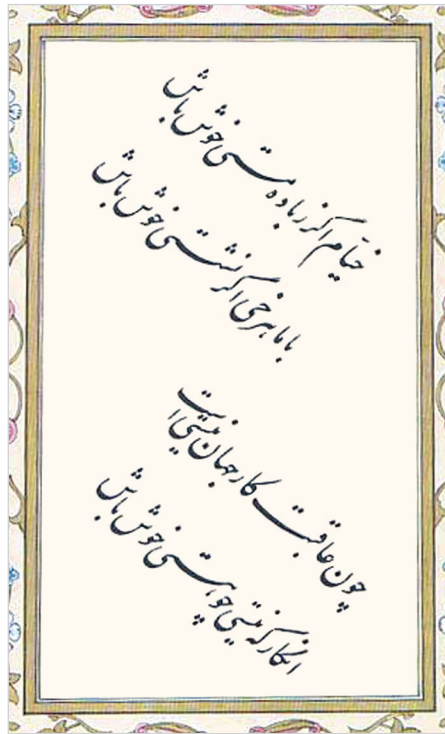 خیام اگر ز باده مستی خوش باش
با ماهرخی اگر نشستی خوش باش
چون عاقبت کار جهان نیستی است
انگار که نیستی چو هستی خوش باش